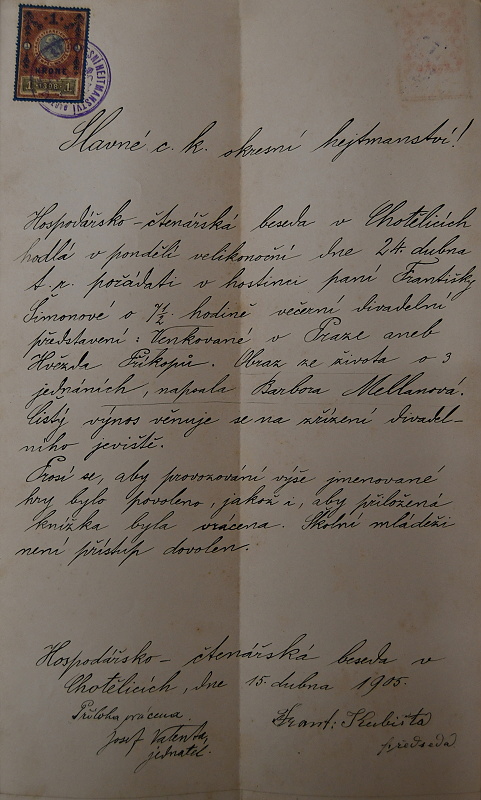 1
KRONE
1 1898 1
Slavné c. k. okresní hejtmanství!
Hospodářsko-čtenářská beseda v Chotělicích
hodlá v pondělí velikonoční dne 24. dubna
t. r. pořádati v hostinci paní Františky
Šimonové o 7½ hodině večerní divadelní
představení: Venkované v Praze aneb
Hvězda Příkopů. Obraz ze života o 3
jednáních, napsala Barbora Mellanová.
Čistý výnos věnuje se na zřízení divadel-
ního jeviště.
Prosí se, aby provozování výše jmenované
hry bylo povoleno, jakož i, aby přiložená
knížka byla vrácena. Školní mládeži
není přístup dovolen.
Hospodářsko-čtenářská beseda v
Chotělicích, dne 15. dubna 1905.
Příloha vrácena.
Frant: Kubišta
Josef Valenta,
předseda
jednatel.